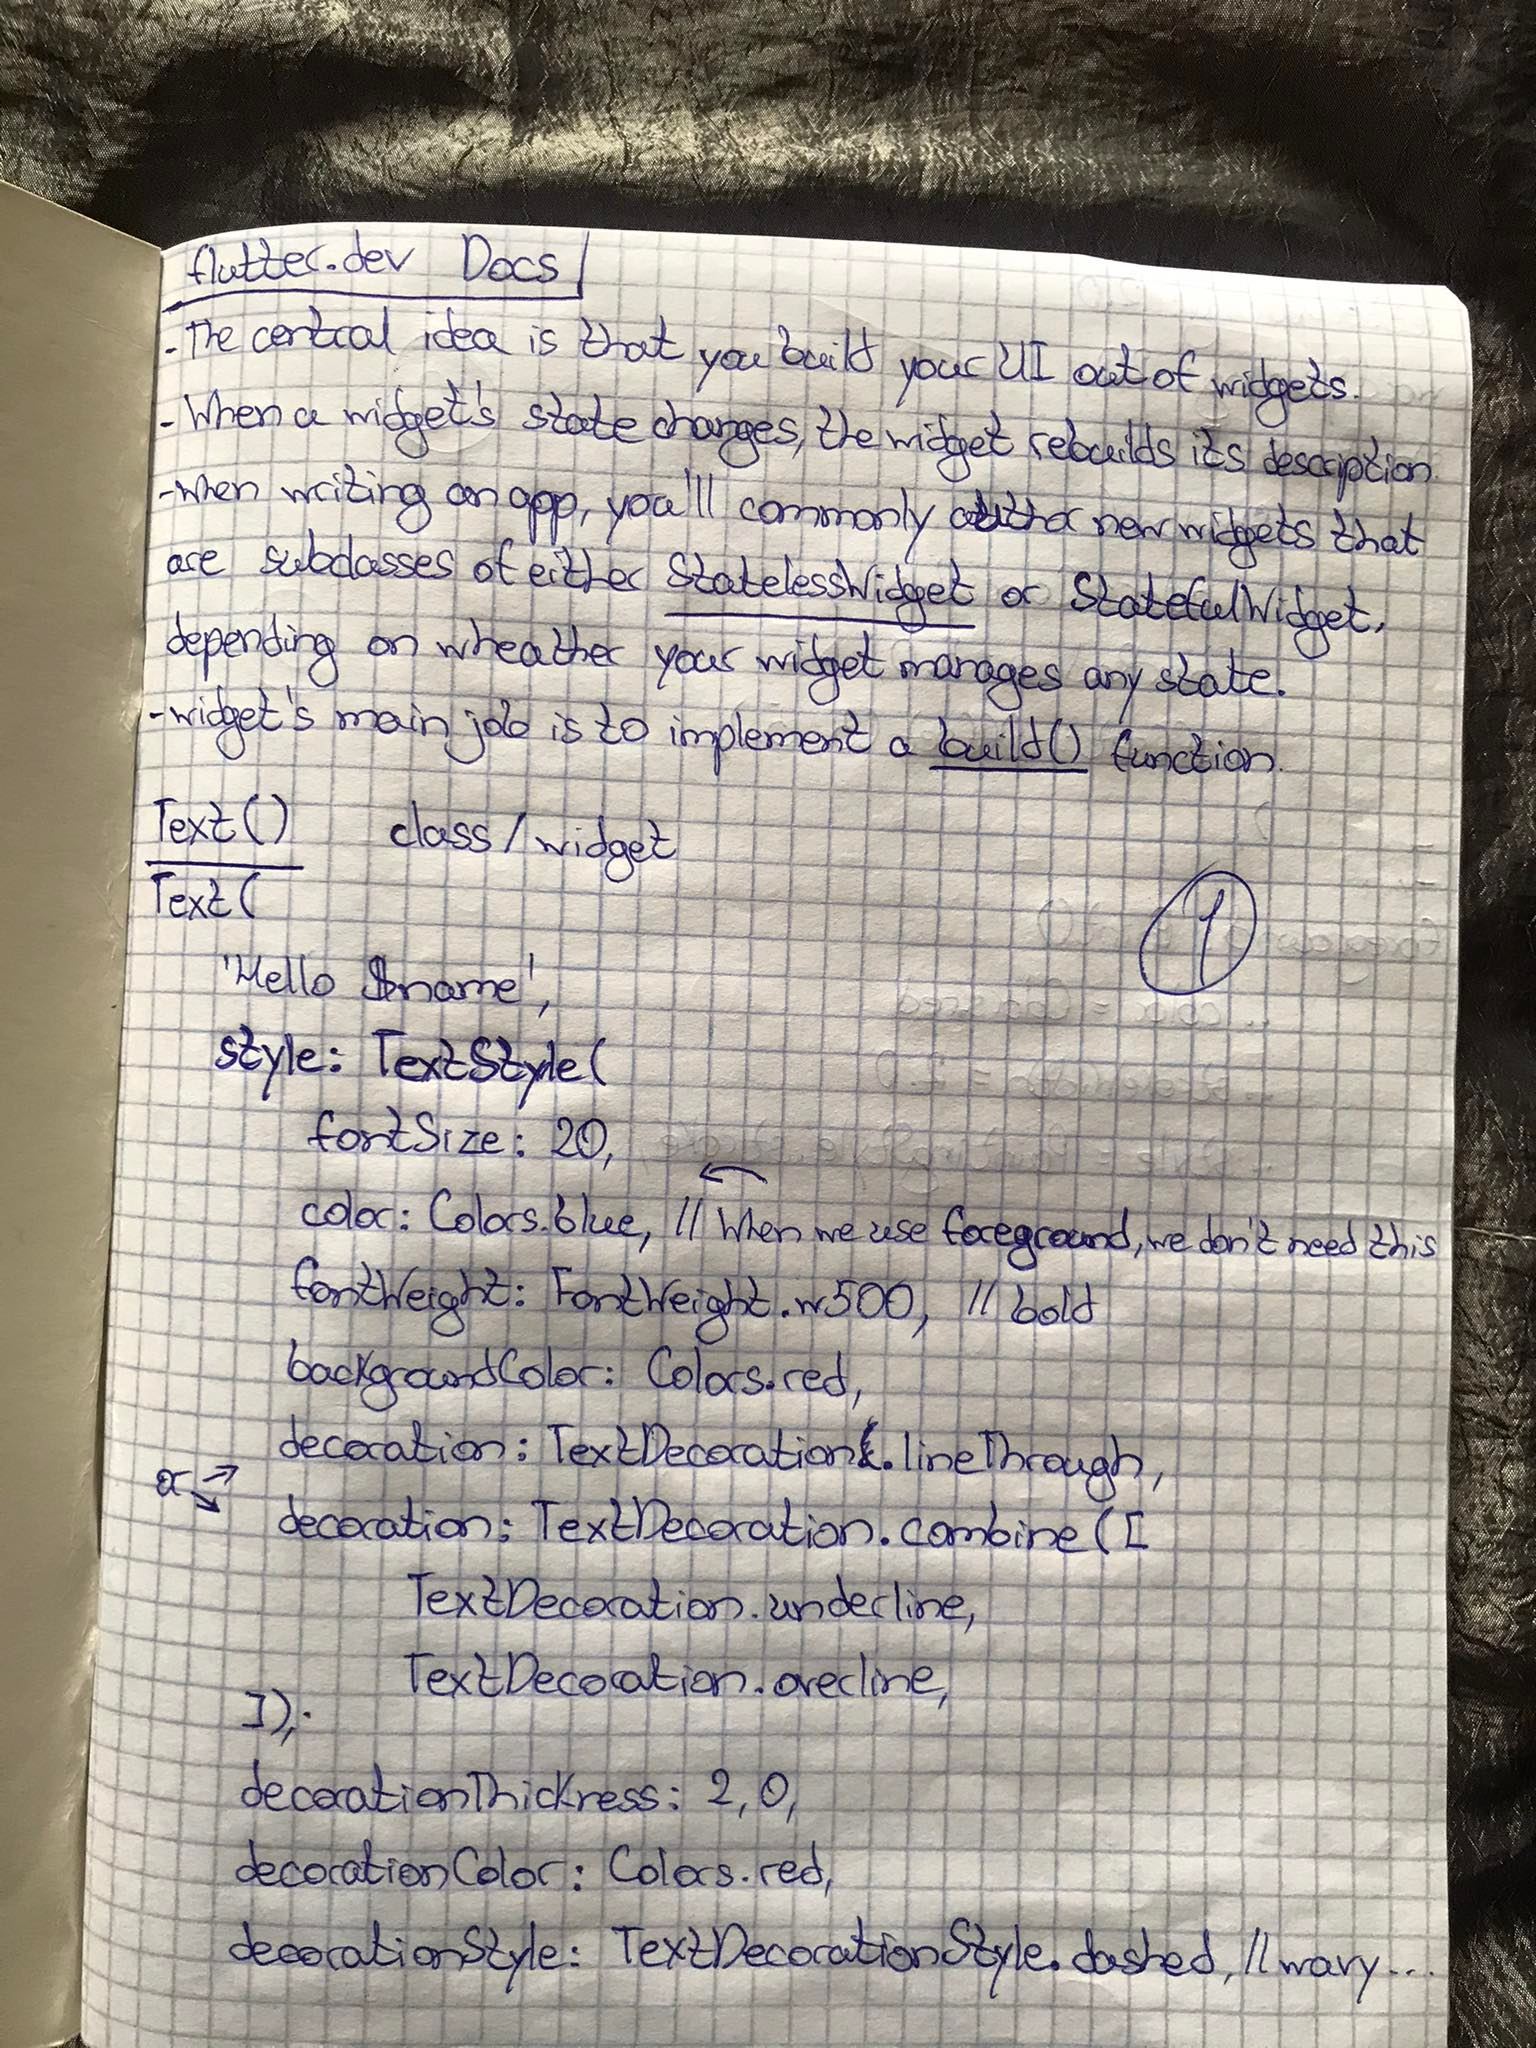 flutter.dev Docs
- The central idea is that you build your UI out of widgets.
- When a widget's state changes, the widget rebuilds its description
- when writing an app, you'll commonly author new widgets that
are subclasses of either StatelessWidget or StatefulWidget,
depending on wheather your widget manages any state.
- widget's main job is to implement a build() function.
Text() class/widget
Text(
1
'Hello $name',
style: TextStyle(
fontSize: 20,
color: Colors.blue, // When we use foreground, we don't need this
fontWeight: FontWeight.w500, // bold
backgroundColor: Colors.red,
decoration: TextDecoration.lineThrough,
or
decoration: TextDecoration.combine([
TextDecoration.underline,
TextDecoration.overline,
]),
decorationThickness: 2,0,
decorationColor: Colors.red,
decorationStyle: TextDecorationStyle.dashed, // wavy...